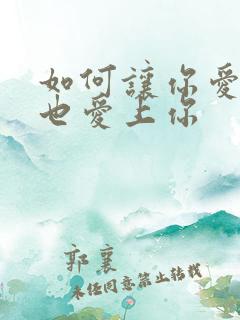 如何讓你愛
也愛上你
郭襄
未经同意禁止转载